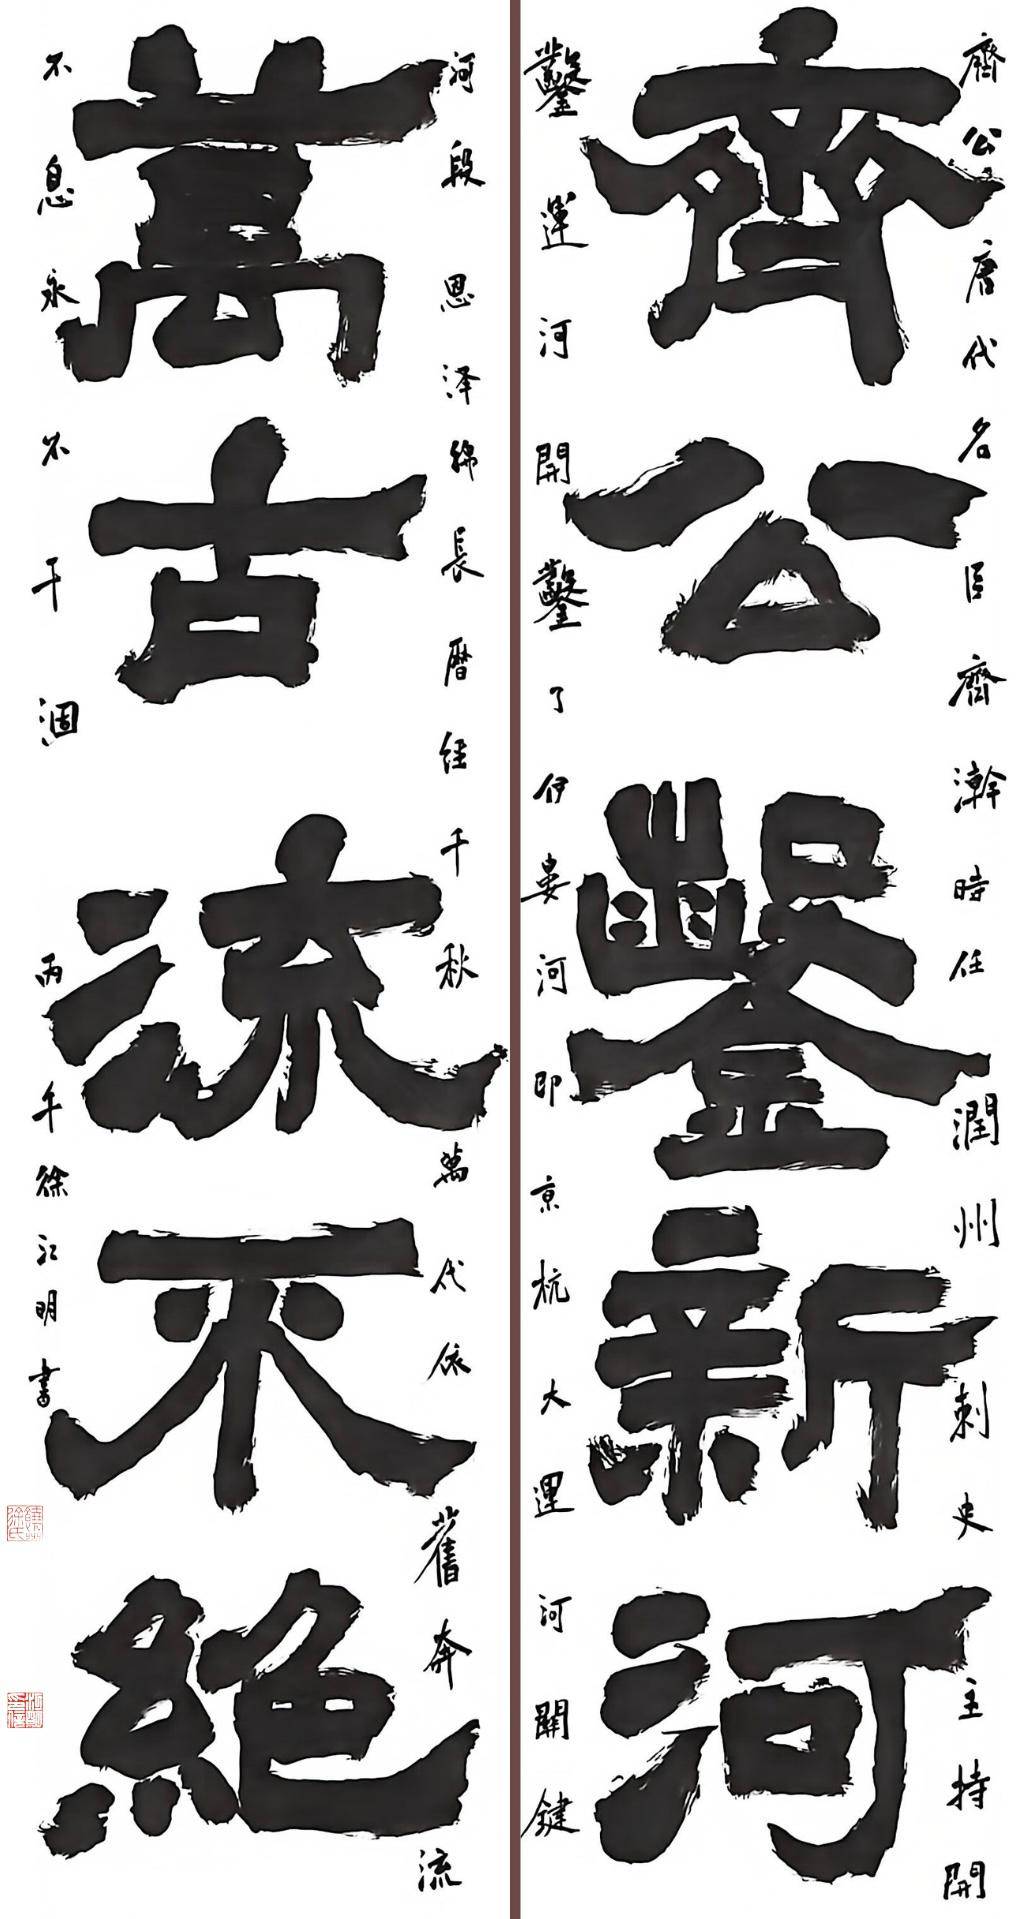 齊公鑿新河
齊公唐代名臣齊澣時任潤州刺史主持開
鑿運河開鑿了伊婁河即京杭大運河關鍵
萬古流不絕
河段恩泽綿長曆经千秋萬代依舊奔流
不息永不干涸
丙午徐江明書